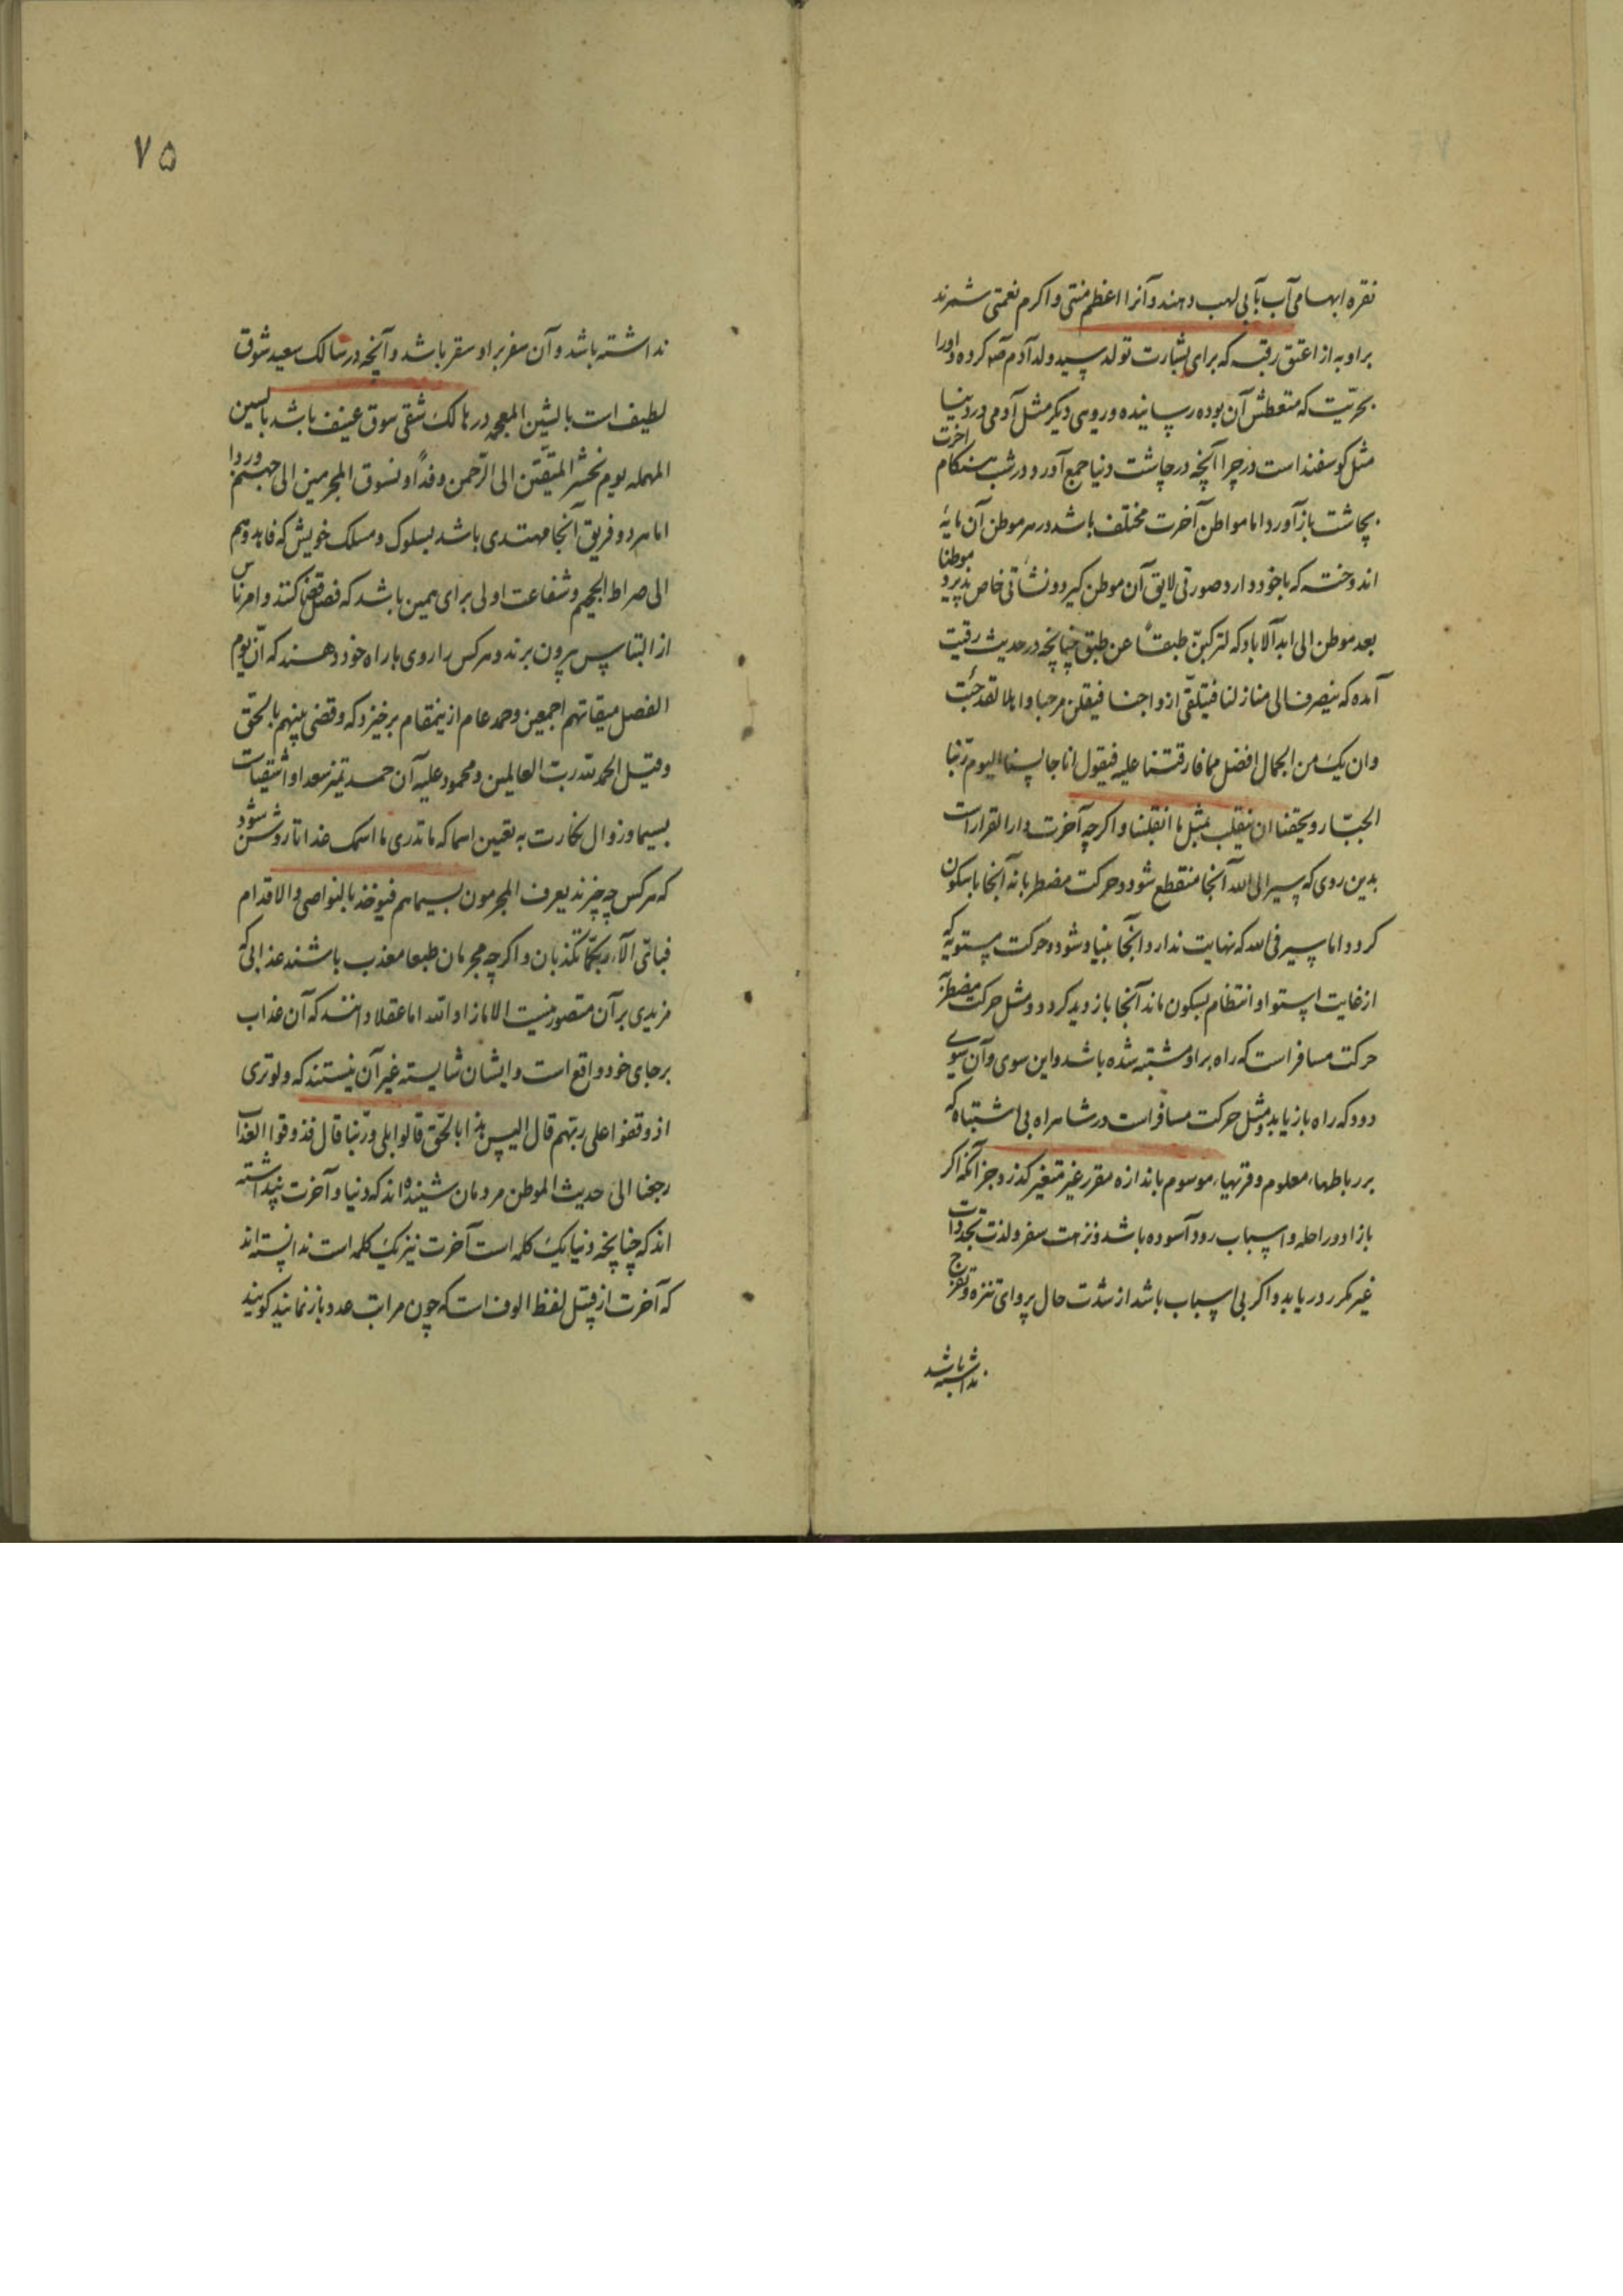 نقره ابهامی آب بابی لهب دهند و آنرا اعظم منتی و اکرم نعمتی شمرند
براو به از اعتق رقبه که برای بشارت تولد سید ولد آدم صم کرده و اورا
بحریّت که متعطش آن بوده رسانیده و روی دیکر مثل آدمی در دنیا
مثل کوسفند است در چرا آنچه در چاشت دنیا جمع آورد در شب هنکام آخرت
بچاشت باز آورد اما مواطن آخرت مختلف باشد در هر موطن آن مایهٔ
اندوخته که با خود دارد صورتی لایق آن موطن کیرد و نشاتی خاص پذیرد موطنا
بعد موطن الی ابد الآباد که لترکبنّ طبقاً عن طبق چنانچه در حدیث رقیت
آمده که ینصرف الی منازلنا فیتلقّی ازواجنا فیقلن مرحبا و اهلا لقد جئت
وان بک من الجمال افضل مما فارقتنا علیه فیقول انا جالسنا الیوم ربّنا
الجبّار و یحقنا ان ینقلب بمثل ما انقلبنا و اکرچه آخرت دار القرار است
بدین روی که سیر الی الله آنجا منقطع شود و حرکت مضطربانه آنجا با سکون
کردد اما سیر فی الله که نهایت ندارد آنجا بنیاد شود و حرکت مستویه که
از غایت استوا و انتظام بسکون ماند آنجا باز دید کردد و مثل حرکت مضطربه
حرکت مسافر است که راه براو مشتبه شده باشد و این سوی و آن سوی
دود که راه باز یابد و مثل حرکت مسافر است در شاهراه بی اشتباه که
بر رباطهاء معلوم و قریهاء موسوم باندازه مقرر غیر متغیر کذرد جز آنکه اکر
با زاد و راحله و اسباب رود آسوده باشد و نزهت سفر و لذت تجددات
غیر مکرر دریابد و اکر بی اسباب باشد از شدت حال پروای تنزه و تفرج
نداشته باشد
۷۵
نداشته باشد و آن سفر براو سقر باشد و آنچه در سالک سعید شوق
لطیف است بالشین المعجمه در هالک شقی سوق عنیف باشد بالسین
المهمله یوم نحشر المتقین الی الرّحمن وفداً و نسوق المجرمین الی جهنم وردا
اما هر دو فریق آنجا مهتدی باشد بسلوک و مسلک خویش که فاهدوهم
الی صراط الجحیم و شفاعت اولی برای همین باشد که فصل قضا کنند و امر ناس
از التباس بیرون برند و هر کس را روی باراه خود دهند که انّ یوم
الفصل میقاتهم اجمعین و حمد عام از ینمقام برخیزد که و قضی بینهم بالحق
و قیل الحمد لله ربّ العالمین و محمود علیه آن حمد تمیز سعدا و اشقیاست
بسیما و زوال نکارت به تعین اسما که ما تدری ما اسمک غدا تا روشن شود
که هر کس چه چیزند یعرف المجرمون بسیماهم فیوخذ بالنواصی و الاقدام
فبایّ الآء ربّکما تکذبان و اکرچه مجرمان طبعا معذب باشند عذابی که
مزیدی بر آن متصور نیست الا ما زاد الله اما عقلا دانند که آن عذاب
برجای خود واقع است و ایشان شایسته غیر آن نیستند که و لو تری
اذ وقفوا علی ربّهم قال الیس هذا بالحقّ قالوا بلی و ربّنا قال فذوقوا العذاب
رجعنا الی حدیث الموطن مردمان شنیده اند که دنیا و آخرت پنداشته
اند که چنانچه دنیا یک کلمه است آخرت نیز یک کلمه است ندانسته اند
که آخرت از قبیل لفظ الوف است که چون مراتب عدد باز نمایند کویند